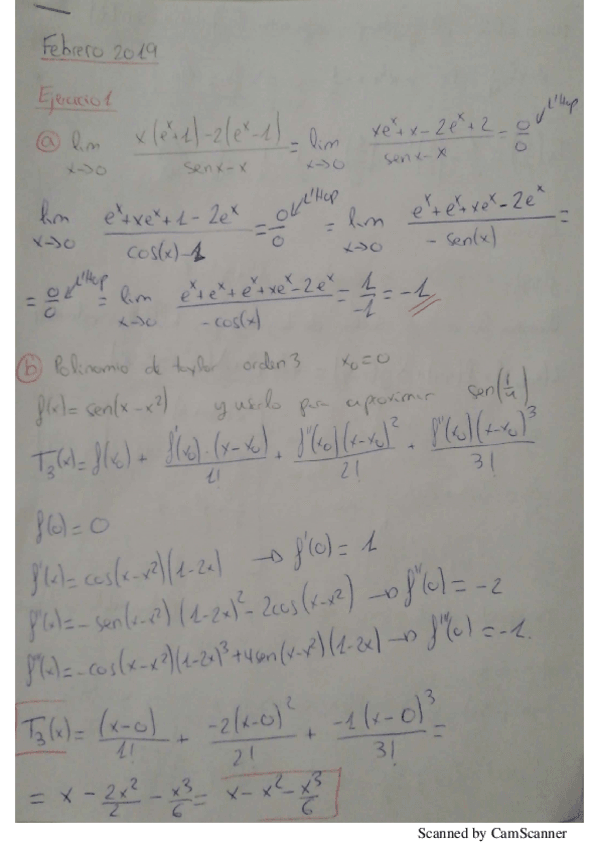 Febrero 2019
Ejercicio 1
a) lim x→0 x(eˣ+1)-2(eˣ-1) / senx-x = lim x→0 xeˣ+x-2eˣ+2 / senx-x = 0/0 L'Hop
lim x→0 eˣ+xeˣ+1-2eˣ / cos(x)-1 = 0/0 L'Hop = lim x→0 eˣ+eˣ+xeˣ-2eˣ / -sen(x) =
= 0/0 L'Hop = lim x→0 eˣ+eˣ+eˣ+xeˣ-2eˣ / -cos(x) = 1/-1 = -1
b) Polinomio de taylor orden 3 x₀=0
f(x)=sen(x-x²) y usarlo para aproximar sen(1/4)
T₃(x)=f(x₀) + f'(x₀)·(x-x₀)/1! + f''(x₀)(x-x₀)²/2! + f'''(x₀)(x-x₀)³/3!
f(0)=0
f'(x)=cos(x-x²)(1-2x) → f'(0)=1
f''(x)=-sen(x-x²)(1-2x)²-2cos(x-x²) → f''(0)=-2
f'''(x)=-cos(x-x²)(1-2x)³+4sen(x-x²)(1-2x) → f'''(0)=-1.
T₃(x)= (x-0)/1! + -2(x-0)²/2! + -1(x-0)³/3! =
= x - 2x²/2 - x³/6 = x-x²-x³/6
Scanned by CamScanner